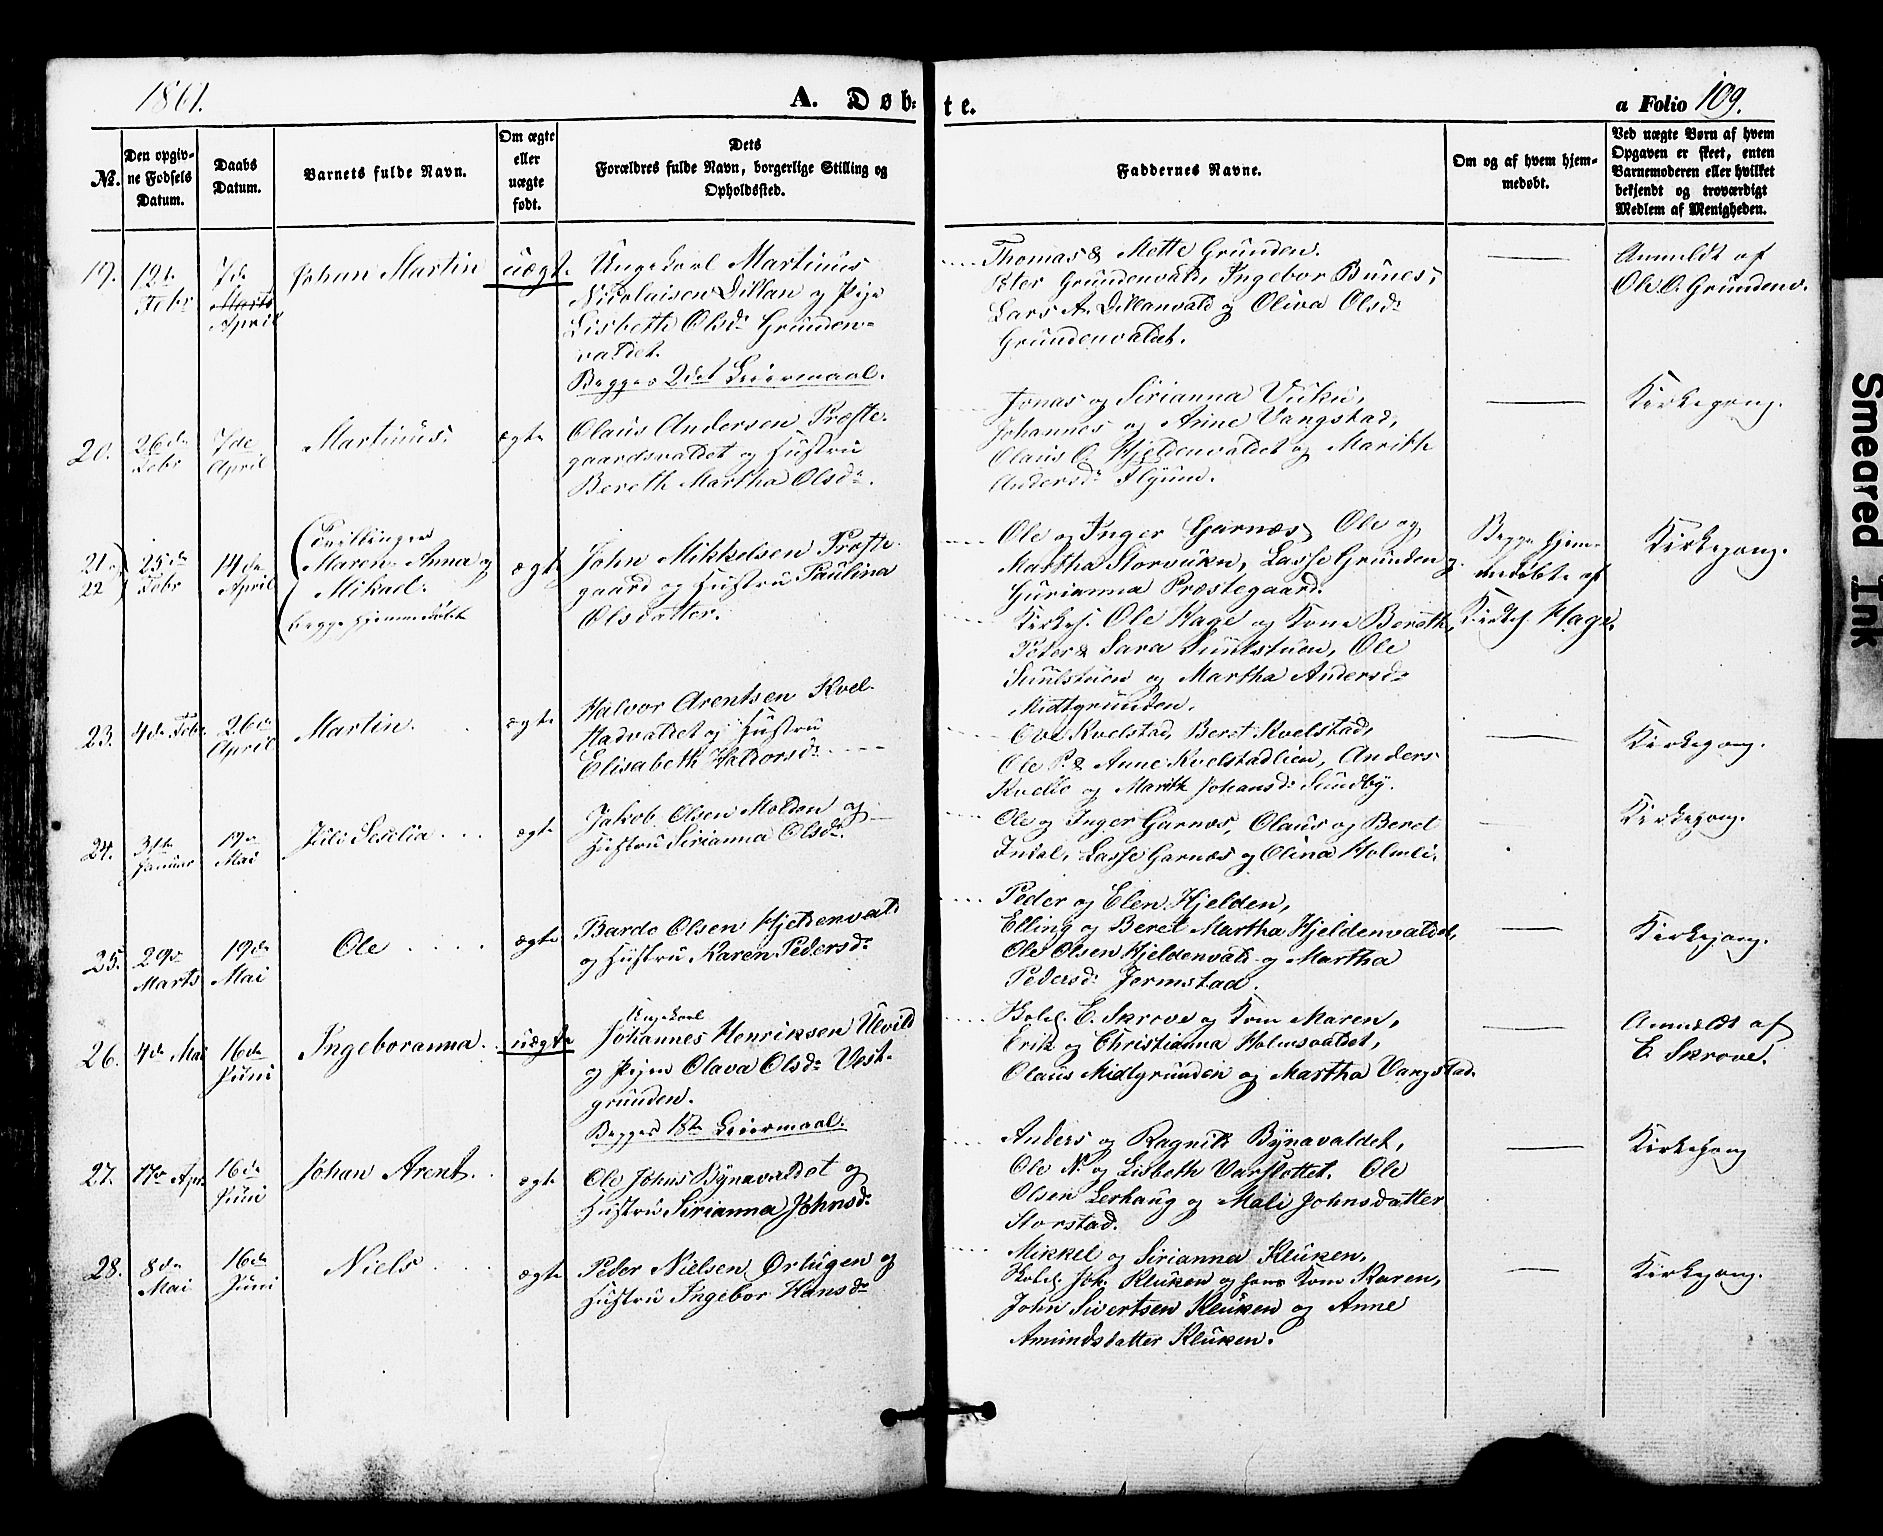 1861.
A. Døb-
te.
a Folio 109.
No.
Den opgiv-
ne Fødsels
Datum.
Daabs
Datum.
Barnets fulde Navn.
Om ægte
eller
uægte
født.
Dets
Forældres fulde Navn, borgerlige Stilling og
Opholdssted.
Faddernes Navne.
Om og af hvem hjem-
medøbt.
Ved uægte Børn af hvem
Opgaven er skeet, enten
Barnemoderen eller hvilket
bekjendt og troværdigt
Medlem af Menigheden.
19.
12te
Febr
7de
Marts
April
Johan Martin
uægte
Ungekarl Martinus
Nicolaisen Dillan og Pige
Lisbeth Olsdr Grunden-
valdet.
Begges 2det Leiermaal.
Thomas & Mette Grunden.
Peter Grundenvald, Ingebor Bunes,
Lars A. Dillanvald og Oliva Olsdr
Grundenvaldet.
Anmeldt af
Ole O. Grundenv.
20.
26de
Febr
7de
April
Martinus.
ægte
Olaus Andersen Præste-
gaardsvaldet og Hustru
Bereth Martha Olsdr.
Jonas og Sirianna Vuku,
Johannes og Anne Vangstad,
Olaus O. Hjeldenvaldet og Marith
Andersdr Flyum.
Kirkegang.
21 og
22
25de
Febr
14de
April
Tvillinger
Maren Anna og
Mikael.
begge hjemmedøbte
ægte
John Mikkelsen Præste-
gaard og Hustru Paulina
Olsdatter.
Ole og Inger Garnæs, Ole og
Martha Storvuku, Lasse Grunden og
Gurianna Præstegaard.
Kirkes. Ole Hage og Kone Bereth,
Peter & Sara Suulstuen, Ole
Suulstuen og Martha Andersdr
Midtgrunden.
Begge hjem-
medøbte af
Kirkes. Hage.
Kirkegang.
23.
4de Febr
26de
April
Martin.
ægte
Halvor Arentsen Kvel-
stadvaldet og Hustru
Elisabeth Haldorsdr.
Ove Kvelstad, Beret Kvelstad,
Ole P. & Anne Kvelstadlien, Anders
Kvello og Marith Johansdr Sundby.
Kirkegang.
24.
31te
Januar
19de
Mai
Juli Seselia
ægte
Jakob Olsen Molden og
Hustru Sirianna Olsdr.
Ole og Inger Garnæs, Olaus og Beret
Indal, Lasse Garnæs og Olina Holmli.
Kirkegang.
25.
29de
Marts
19de
Mai
Ole
ægte
Bardo Olsen Hjeldenvald
og Hustru Karen Pedersdr
Peder og Elen Hjelden,
Elling og Beret Martha Hjeldenvaldet,
Ole Olsen Hjeldenvald og Martha
Pedersdr Jermstad.
Kirkegang.
26.
4de Mai
16de
Juni
Ingeboranna.
uægte
Ungekarl
Johannes Henriksen Ulvild
og Pigen Olava Olsdr Vest-
grunden.
Begges 1ste Leiermaal.
Skolel. E. Skrove og Kone Maren,
Erik og Christianna Holmsvaldet,
Olaus Midtgrunden og Martha Vangstad.
Anmeldt af
E. Skrove.
27.
17de Apr.
16de
Juni
Johan Arent.
ægte
Ole Johns Bynavaldet og
Hustru Sirianna Johnsdr
Anders og Ragnild Bynavaldet,
Ole N. og Lisbeth Varslottet. Ole
Olsen Lerhaug og Mali Johnsdatter
Storstad.
Kirkegang
28.
8de
Mai
16de
Juni
Niels
ægte
Peder Nielsen Ørtugen og
Hustru Ingebor Hansdr
Mikkel og Sirianna Kluken,
Skolel. Joh. Kluken og hans Kone Karen,
John Sivertsen Kluken og Anne
Amundsdatter Kluken.
Kirkegang.
Smeared Ink